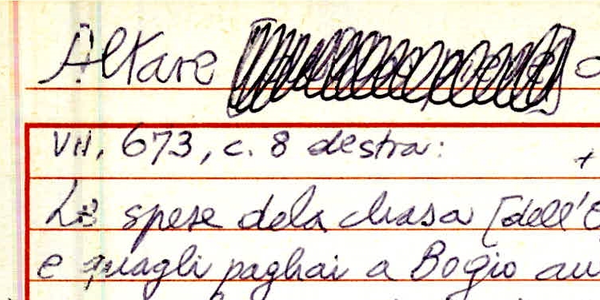 Altare
VII, 673, c. 8 destra: +
Le spese dela chasa [dell'
e quagli paghai a Bogio